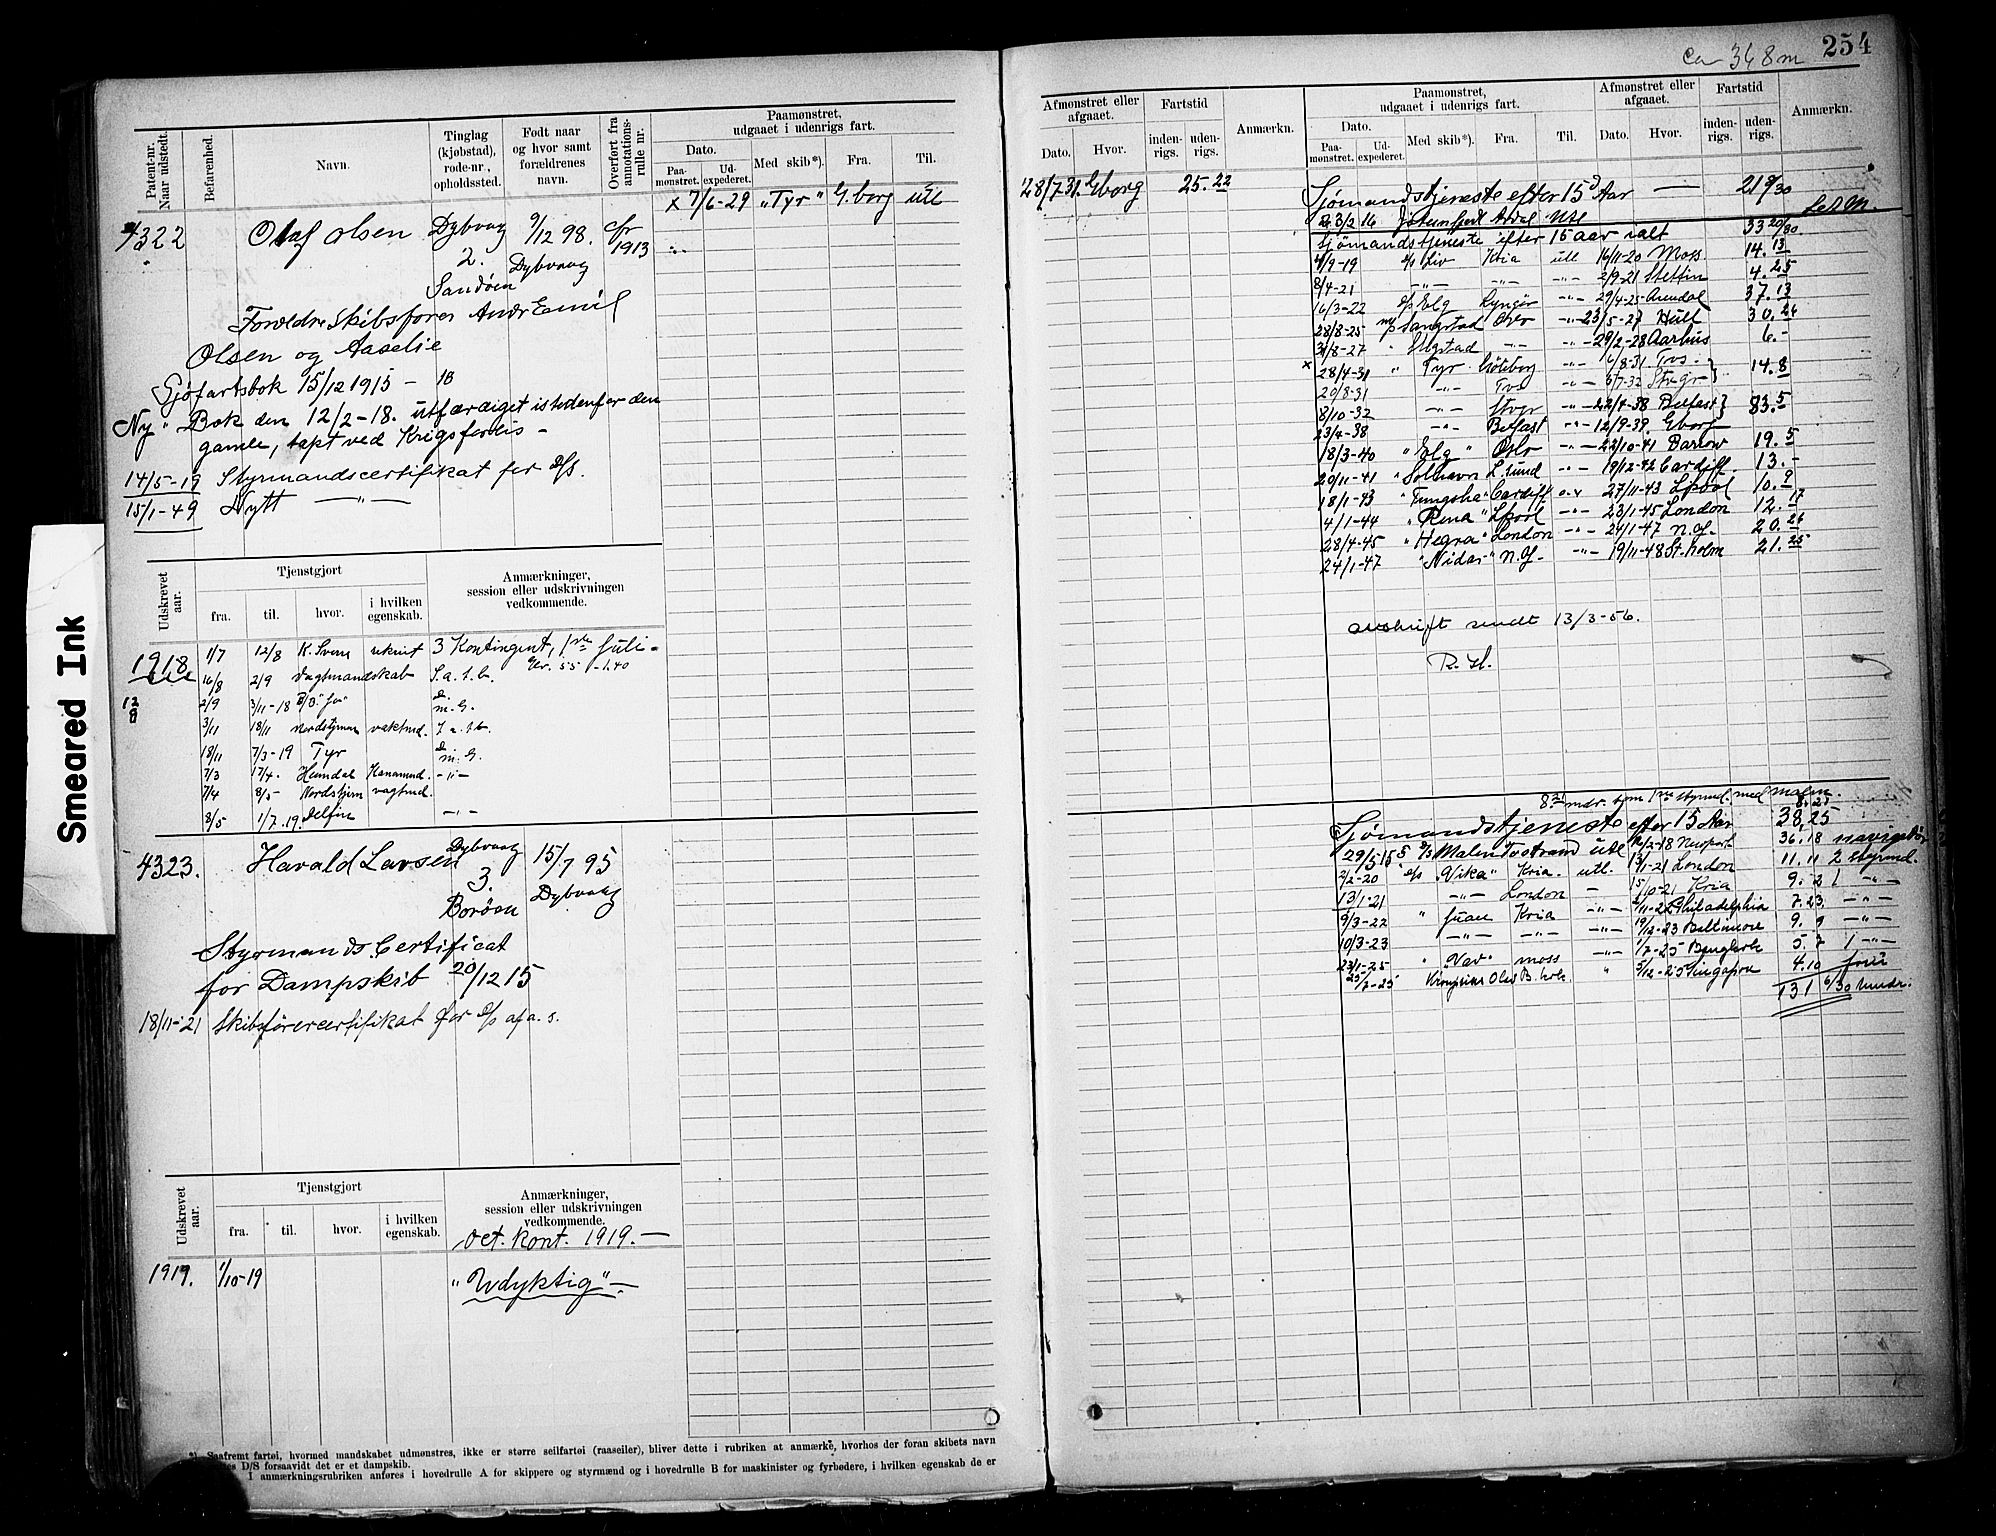 254
Ca 348 m
Smeared Ink
Patent-nr. Naar udstedt.
Befarenhed.
Navn.
Tinglag (kjøbstad), rode-nr., opholdssted.
Født naar og hvor samt forældrenes navn.
Overført fra annotationsrulle nr.
Paamønstret, udgaaet i udenrigs fart.
Dato.
Paamønstret.
Udexpederet.
Med skib*).
Fra.
Til.
x 7/6-29 „Tyr" G.borg utl
4322
Olaf Olsen
Dybvaag
2.
Sandøen
9/12 98.
Dybvaag
cfr
1913
Foreldre Skibsfører Andr Emil
Olsen og Aaselie
Sjøfartsbok 15/12 1915 -
Ny Bok den 12/2-18. utfærdiget istedenfor den
gamle, tapt ved Krigsforlis -
14/5-19 Styrmandscertifikat for D/S.
15/1-49 Nytt —"—
Udskrevet aar.
Tjenstgjort
fra.
til.
hvor.
i hvilken egenskab.
Anmærkninger, session eller udskrivningen vedkommende.
1918
1/7 12/8 K. Svern rekrut 3 Kontingent, 1ste Juli -
16/8 2/9
2/9 3/11-18 m. G.
3/11 18/11
18/11 7/3-19 Tyr m. G.
7/3 17/4. Heimdal -"-
7/4 8/5- Nordstjern vagtmd.
8/5 1/7.19. Delfin -"-
4323.
Harald Larsen
Dybvaag
3.
Borøen
15/7 95
Dybvaag
Styrmands Certificat
for Dampskib 20/12 15
18/11-21 Skibsførercertifikat for D/S af a. s.
Udskrevet aar.
Tjenstgjort
fra.
til.
hvor.
i hvilken egenskab.
Anmærkninger, session eller udskrivningen vedkommende.
Oct. Kont. 1919. —
1919. 1/10-19 „Udyktig" -
*) Saafremt fartøi, hvormed mandskabet udmønstres, ikke er større seilfartøi (raaseiler), bliver dette i rubriken at anmærke, hvorhos der foran skibets navn
D/S forsaavidt det er et dampskib.
I anmærkningsrubriken anføres i hovedrulle A for skippere og styrmænd og i hovedrulle B for maskinister og fyrbødere, i hvilken egenskab de er
Afmønstret eller afgaaet.
Dato.
Hvor.
Fartstid
indenrigs.
udenrigs.
Anmærkn.
Paamønstret, udgaaet i udenrigs fart.
Dato.
Paamønstret.
Udexpederet.
Med skib*).
Fra.
Til.
Afmønstret eller afgaaet.
Dato.
Hvor.
Fartstid
indenrigs.
udenrigs.
Anmærkn.
28/7 31. Gborg 25.22
Sjømandstjeneste efter 15 Aar — 21 9/30
Sjømandstjeneste efter 15 aar ialt 33 20/30
4/9-19 D/S Liv Kria utl 16/11-20 Moss 14.13
8/4-21 -"- -"- -"- 2/9-21 Stettin 4.25
16/3-22 D/S Elg Lyngør -"- 29/4-25 Arendal 37.13
28/8-25 Sangstad Oslo -"- 23/5-27 Hull
31/8-27 -"- -"- 29/2-28 Aarhus 6.-
x 28/4-31 " Tyr Göteborg -"- 6/8-31. Tvs. } 14.8
20/8-31 -"- Tvs -"-
8/10-32 -"- -"- 22/4-38 Belfast } 83.5
23/4-38 -"- Belfast -"- 12/9-39. Gborg
18/3-40 " Elg " Oslo -"- 22/10-41 Barrow 19.5
20/11-41 " Solhavn -"- 19/12-42 Cardiff. 13.-
18/1-43 " Tungsha " Cardiff -"- 27/11-43 Lpool 10.9
4/1-44 " Rena " Lpool -"- 23/1-45 London 12.17
28/4-45 " Hegra " London -"- 24/1-47 N.Y. 20.26
24/1-47 "Nidar" N.Y. -"- 19/11-48 St.holm 21.25
avskrift sendt 13/3-56.
8 mdr. som 1ste styrmd. med malm.
8.25
Sjømandstjeneste efter 15 Aar 38,25
29/5-15 Malen Tvstrand utl 16/2-18 Newport 36,18 navigatør
2/2-20 D/S „Vika" Kria. utl. 13/1-21 London 11.11 2 styrmd.
13/1-21 -"- London - 15/10-21 Kria 9.2 1 -"-
9/3-22 " Juan Kria -"- Philadelphia 7.23 -"-
10/3-23 -"- -"- -"- 19/12-23 Baltimore 9.9 -"-
23/1-25 " „Vav" Moss -"- 5.7 1 -"-
Kronprins Olav 5/12-25 Singapore 4.10
131 6/30 mndr.